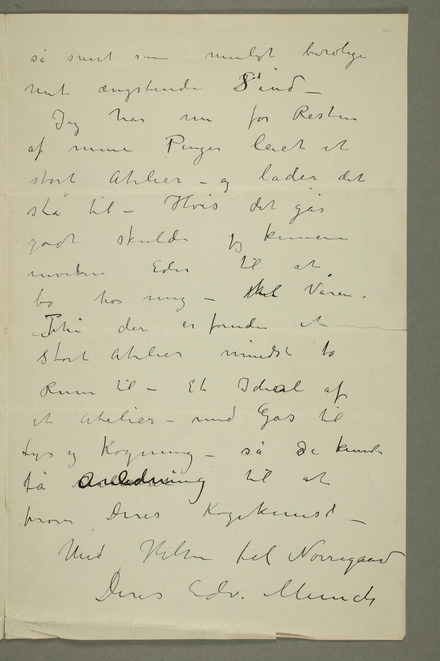 så snart som muligt berolige
mit ængstende Sind –
Jeg har nu for Resten
af mine Penger leiet et
stort Atelier – og lader det
stå til – Hvis det går
godt skulde jeg kunne
invitere Eder til at
bo hos mig – til Våren.
Thi der er foruden et
stort Atelier mindst to
Rum til – Et Ideal af
et Atelier – med Gas til
Lys og Kogning – så De kunde
få Anledning til at
prøve Deres Kogekunst –
Med Hilsen til Nørregaard
Deres Edv. Munch